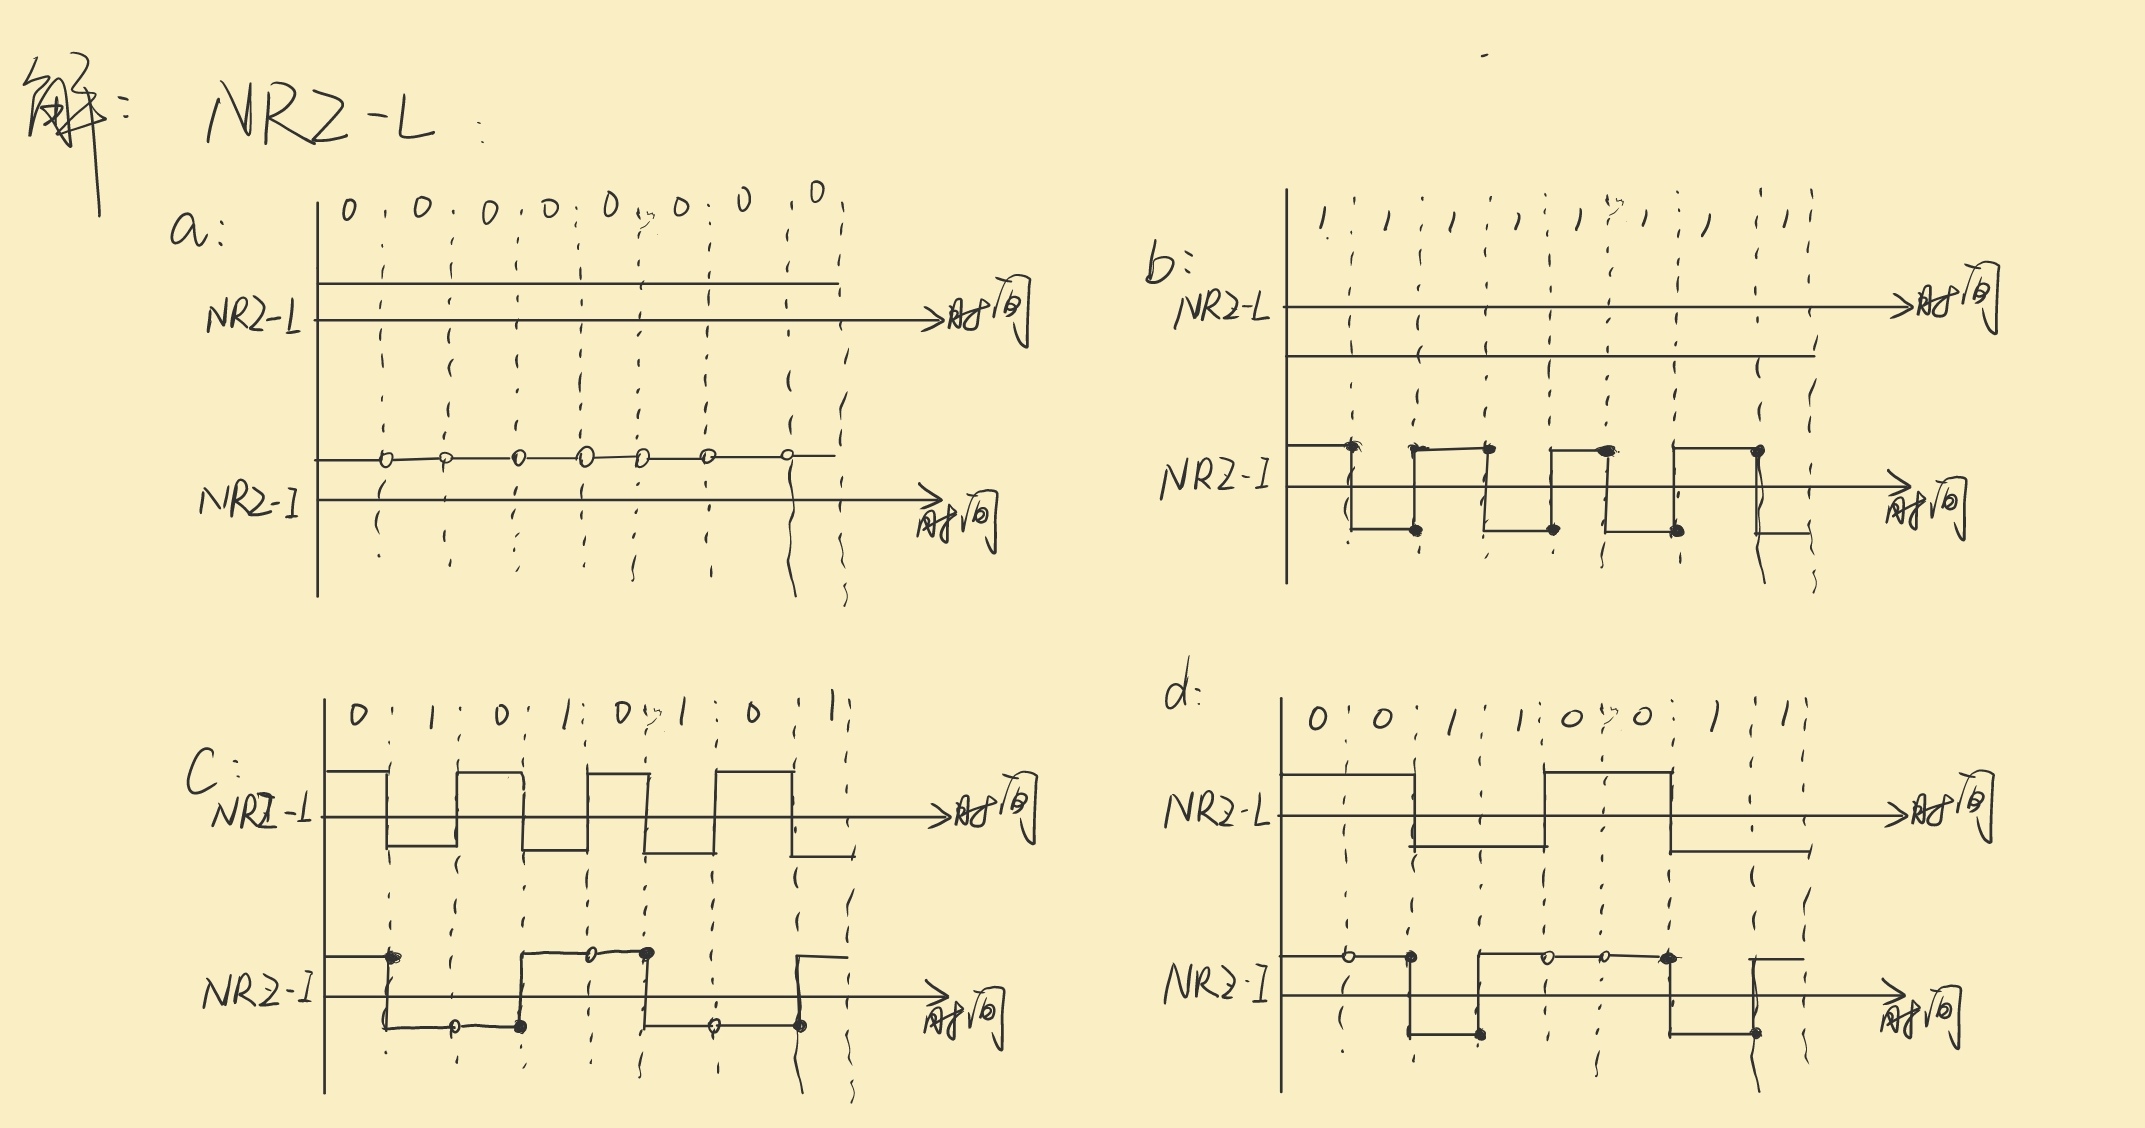 解: NRZ-L :
a: 0 0 0 0 0 0 0 0
NRZ-L 时间
NRZ-I 时间
b: 1 1 1 1 1 1 1 1
NRZ-L 时间
NRZ-I 时间
c: 0 1 0 1 0 1 0 1
NRZ-L 时间
NRZ-I 时间
d: 0 0 1 1 0 0 1 1
NRZ-L 时间
NRZ-I 时间